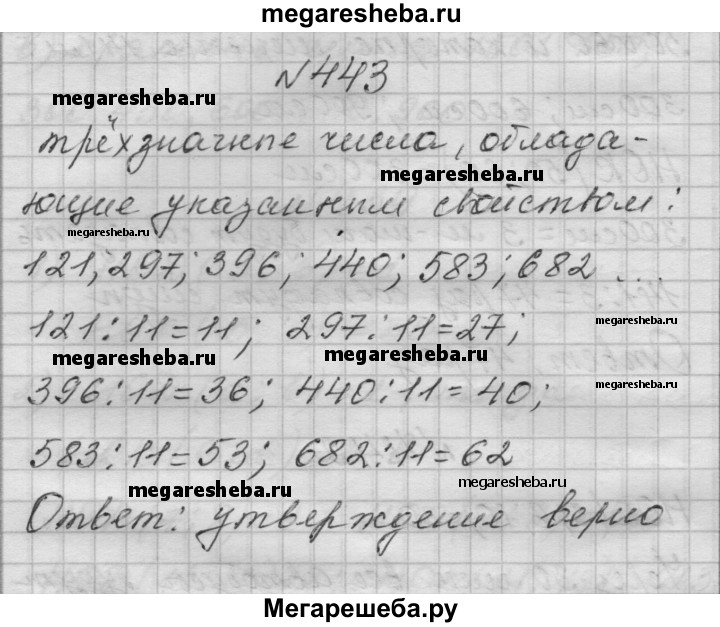 megaresheba.ru
№443
megaresheba.ru
трёхзначные числа, облада-
megaresheba.ru
ющие указанным свойством:
megaresheba.ru
121; 297; 396; 440; 583; 682 ...
megaresheba.ru
121:11=11; 297:11=27;
megaresheba.ru
megaresheba.ru
megaresheba.ru
396:11=36; 440:11=40;
583:11=53; 682:11=62
megaresheba.ru
megaresheba.ru
Ответ: утверждение верно
Мегарешеба.ру